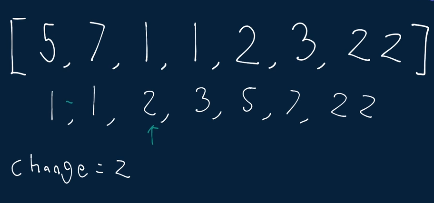 [5, 7, 1, 1, 2, 3, 22]
1, 1, 2, 3, 5, 7, 22
change = 2